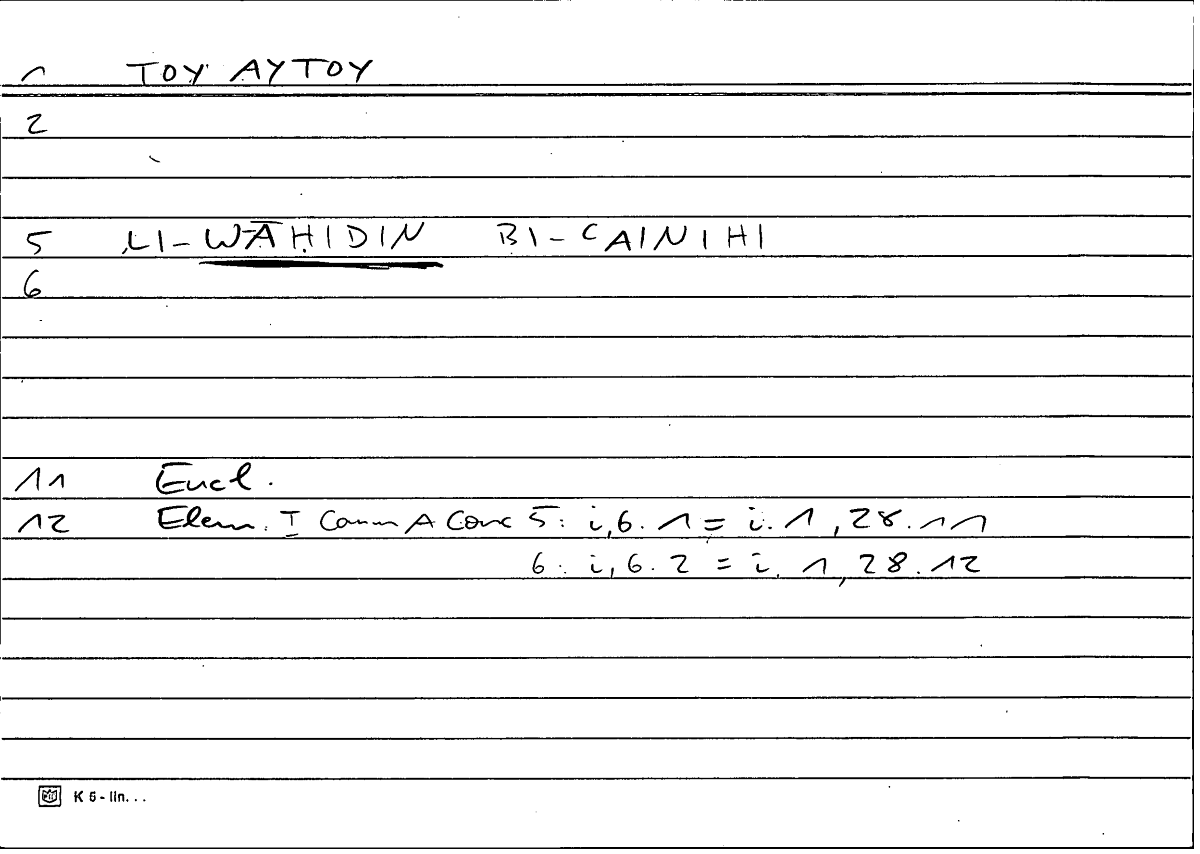 1 ΤΟΥ ΑΥΤΟΥ
2
5 LI-WĀḤIDIN BI-ʿAINIHI
6
11 Eucl.
12 Elem. I Comm A Conc 5: i,6.1 = i.1,28.11
6: i,6.2 = i.1,28.12
K 5 - lin...